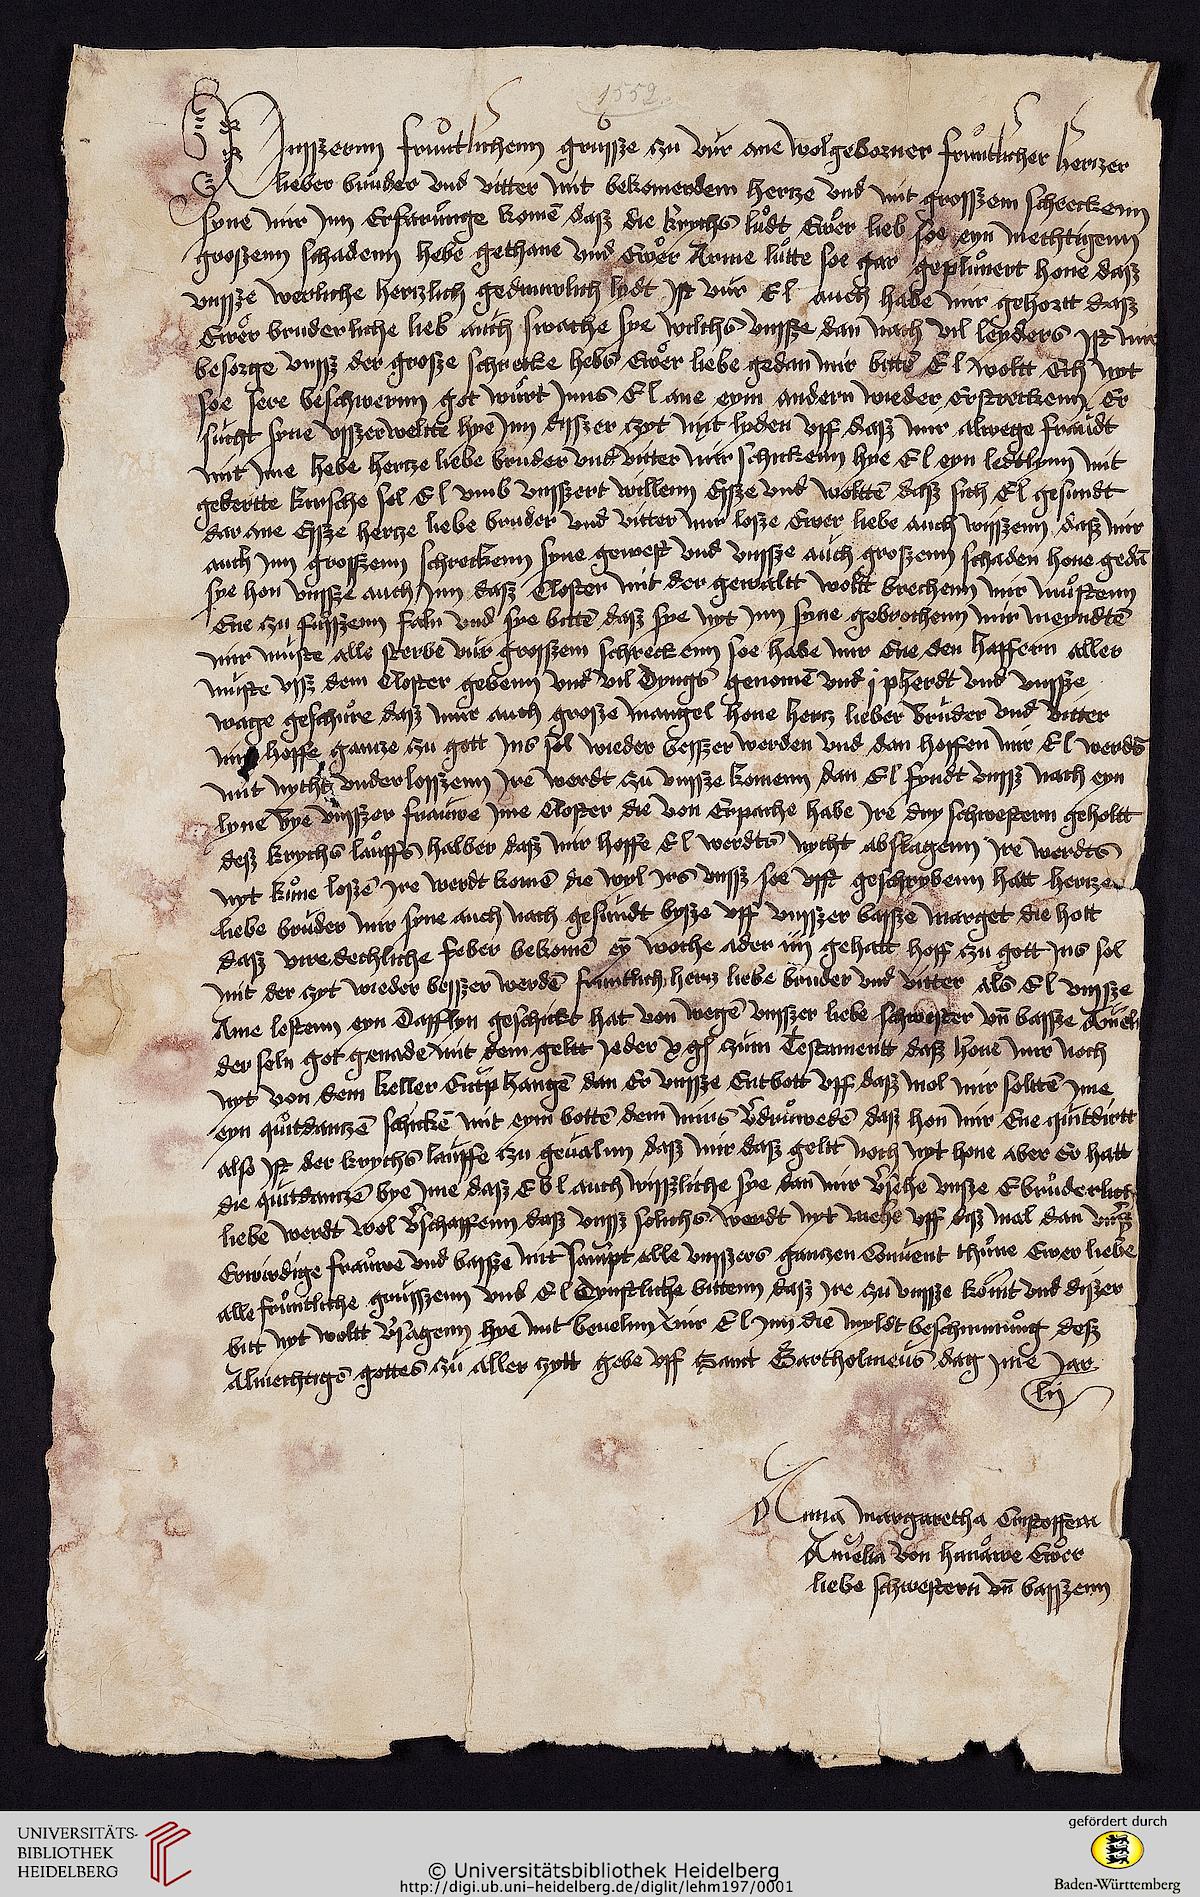 1552
Unsszernn fruntlichenn grussze zu vur ane wolgeborner fruntlicher hertzer
lieber bruder vnd vitter mit bekomerdem hertze vnd mit grosszem schreckenn
syne mir jnn Erfarunge kome daß die krychs ludt Ewer lieb soe eyn mechtigenn
großenn schadenn hebe gethane vnd Ewer Arme lutte soe gar geplunert hone daß
vnssze werliche hertzlich gedruwlich lydt jst vur E l auch habe mir gehortt daß
Ewer bruderliche lieb auch swache sye wilchs vnssze dan nach vil leyders jst mir
besorge vnssz der große schrecke hebs Ewer liebe gedan mir bitte E l woltt Ech nyt
soe sere beschwernn got wurt jnns E l ane eym andern wieder Erstreckenn Er
sucht syne vsszerweltte hye jnn disszer zyt mit lyden vff daß mir alwege fraudt
mit jme hebe hertze liebe bruder vnd vitter mir schickenn hye E l eyn ledtlynn mit
gebertte kirsche sol E l vmb vnsszert willenn Essze vnd woltte daß sich E l gesundt
dar ane Essze hertze liebe bruder vnd vitter mir losze Ewer liebe auch wisszenn daß mir
auch jnn grosszenn schreckenn syne gewest vnd vnssze auch groszenn schaden hone geda
sye hon vnssze auch jnn daß Closter mit der gewaltt woltt brechenn mir mustenn
Ene zu fusszenn faln vnd sye bitte daß sye nyt jnn syne gebrochenn mir meyndte
mir muste alle sterbe vur grosszem schreckenn soe habe mir Ene den haffern aller
muste vssz dem Closter gebenn vnd vil Dyngs genome vnd j pherdt vnd vnssze
wage geschure daß mir auch grosze mangel hone hertz lieber bruder vnd vitter
mir hoffe gantze zu gott jns sol wieder besszer werden vnd dan hoffen mir E l werds
mit nycht vnderlosszenn jre werdt zu vnssze komenn dan E l fyndt vnssz nach eyn
lyne bye vnsszer frauwe jme Closter die von Erpache habe jre dry schwestern geholtt
deß krychs lauffs halber daß mir hoffe E l werdts nycht abslagenn jre werdts
nyt kune losze jre werdt kome die wyl jrs vnssz soe vfft geschrybenn hatt hertze
liebe bruder mir syne auch nach gesundt bysze vff vnsszer bassze marget die hott
daß vnredechliche feber bekome ey woche ader iiij gehatt hoff zu gott jns sol
mit der zyt wieder besszer werde fruntlich hertz liebe bruder vnd vitter als E l vnssze
Ane lestenn eyn Dafflyn geschickt hat von wege vnsszer liebe schwester vn bassze Ameli
der seln got genade mit dem geltt jeder x gl zum Testamentt daß hone mir noch
nyt von dem keller Entphange dan Er vnssze Entbott vff daß mol mir soltte jme
eyn quitdantze schicke mit eym botte dem mirs vdruwede daß hon mir Ene quitdirtt
also jst der krychs lauffe zu geualnn daß mir daß geltt noch nyt hone aber Er hatt
die quitdantze bye jme daß E b l auch wissliche sye dan mir vsehe vnsze E bruderlich
liebe werdt wol vschaffenn daß vnssz solichs werdt nyt mehe vff diß mal dan vnssz
Erwirdige frauwe vnd bassze mit sampt alle vnsszers gantzen Conuent thune Ewer liebe
alle fruntliche grusszenn vnd E l dynstliche bittenn daß jre zu vnssze komt vnd diszer
bitt nyt woltt vsagenn hye mit beuelnn mir E l jnn die myldt beschirmung deß
Almechtigs gottes zu aller zytt gebe vff Sanct Bartholmeus dag jme jar
lij
Anna margaretha Cristoffera
Amelia von hanawe Ewer
liebe schwestern vn basszenn
UNIVERSITÄTS-
BIBLIOTHEK
HEIDELBERG
© Universitätsbibliothek Heidelberg
http://digi.ub.uni-heidelberg.de/diglit/lehm197/0001
gefördert durch
Baden-Württemberg